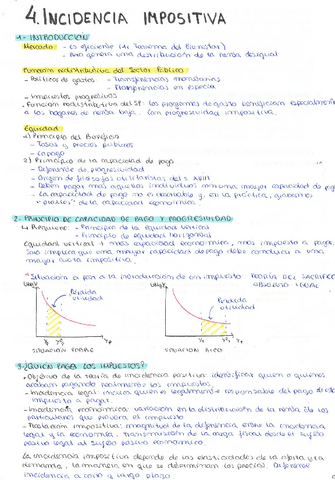 4. INCIDENCIA IMPOSITIVA
1- INTRODUCCIÓN
Mercado: - es eficiente (1er Teorema del Bienestar)
- Pero genera una distribución de la renta desigual
Función redistributiva del Sector Público
- Políticas de gastos - Transferencias monetarias
- Transferencias en especie
- Impuestos progresivos
- Función redistributiva del SP: los programas de gasto benefician especialmente
a los hogares de renta baja. Con progresividad impositiva.
Equidad
1) Principio del Beneficio
- Tasas y precios públicos
- Copago
2) Principio de la capacidad de pago
- Defensores de progresividad
- Origen de filósofos utilitaristas del s. XVIII
- Deben pagar más aquellos individuos con una mayor capacidad de pago
- La capacidad de pago no es observable y, en la práctica, usaremos
de la capacidad económica.
2- PRINCIPIO DE CAPACIDAD DE PAGO Y PROGRESIVIDAD
Requiere: - Principio de la equidad vertical
- Principio de equidad horizontal
Equidad vertical: más capacidad económica, más impuesto a pagar.
Solo implica que una mayor capacidad de pago debe conducir a una
mayor cuota impositiva.
*Situación a partir a la introducción de un impuesto TEORÍA DEL SACRIFICIO
ABSOLUTO IGUAL
Pérdida utilidad
Pérdida utilidad
SITUACIÓN POBRE
SITUACIÓN RICO
3- ¿QUIÉN PAGA LOS IMPUESTOS?
- Objetivo de la teoría de incidencia positiva: identificar quien o quienes
acaban pagando realmente los impuestos.
- Incidencia legal: indica quien es legalmente el responsable del pago de
impuesto a pagar.
- Incidencia económica: variación en la distribución de la renta de los
particulares que provoca el impuesto
- Traslación impositiva: magnitud de la diferencia entre la incidencia
legal y la económica. Transmisión de la carga fiscal desde el sujeto
pasivo legal al sujeto pasivo económico.
La incidencia impositiva depende de las elasticidades de la oferta y la
demanda, la manera en que se determinan los precios. Diferente
incidencia a corto y largo plazo